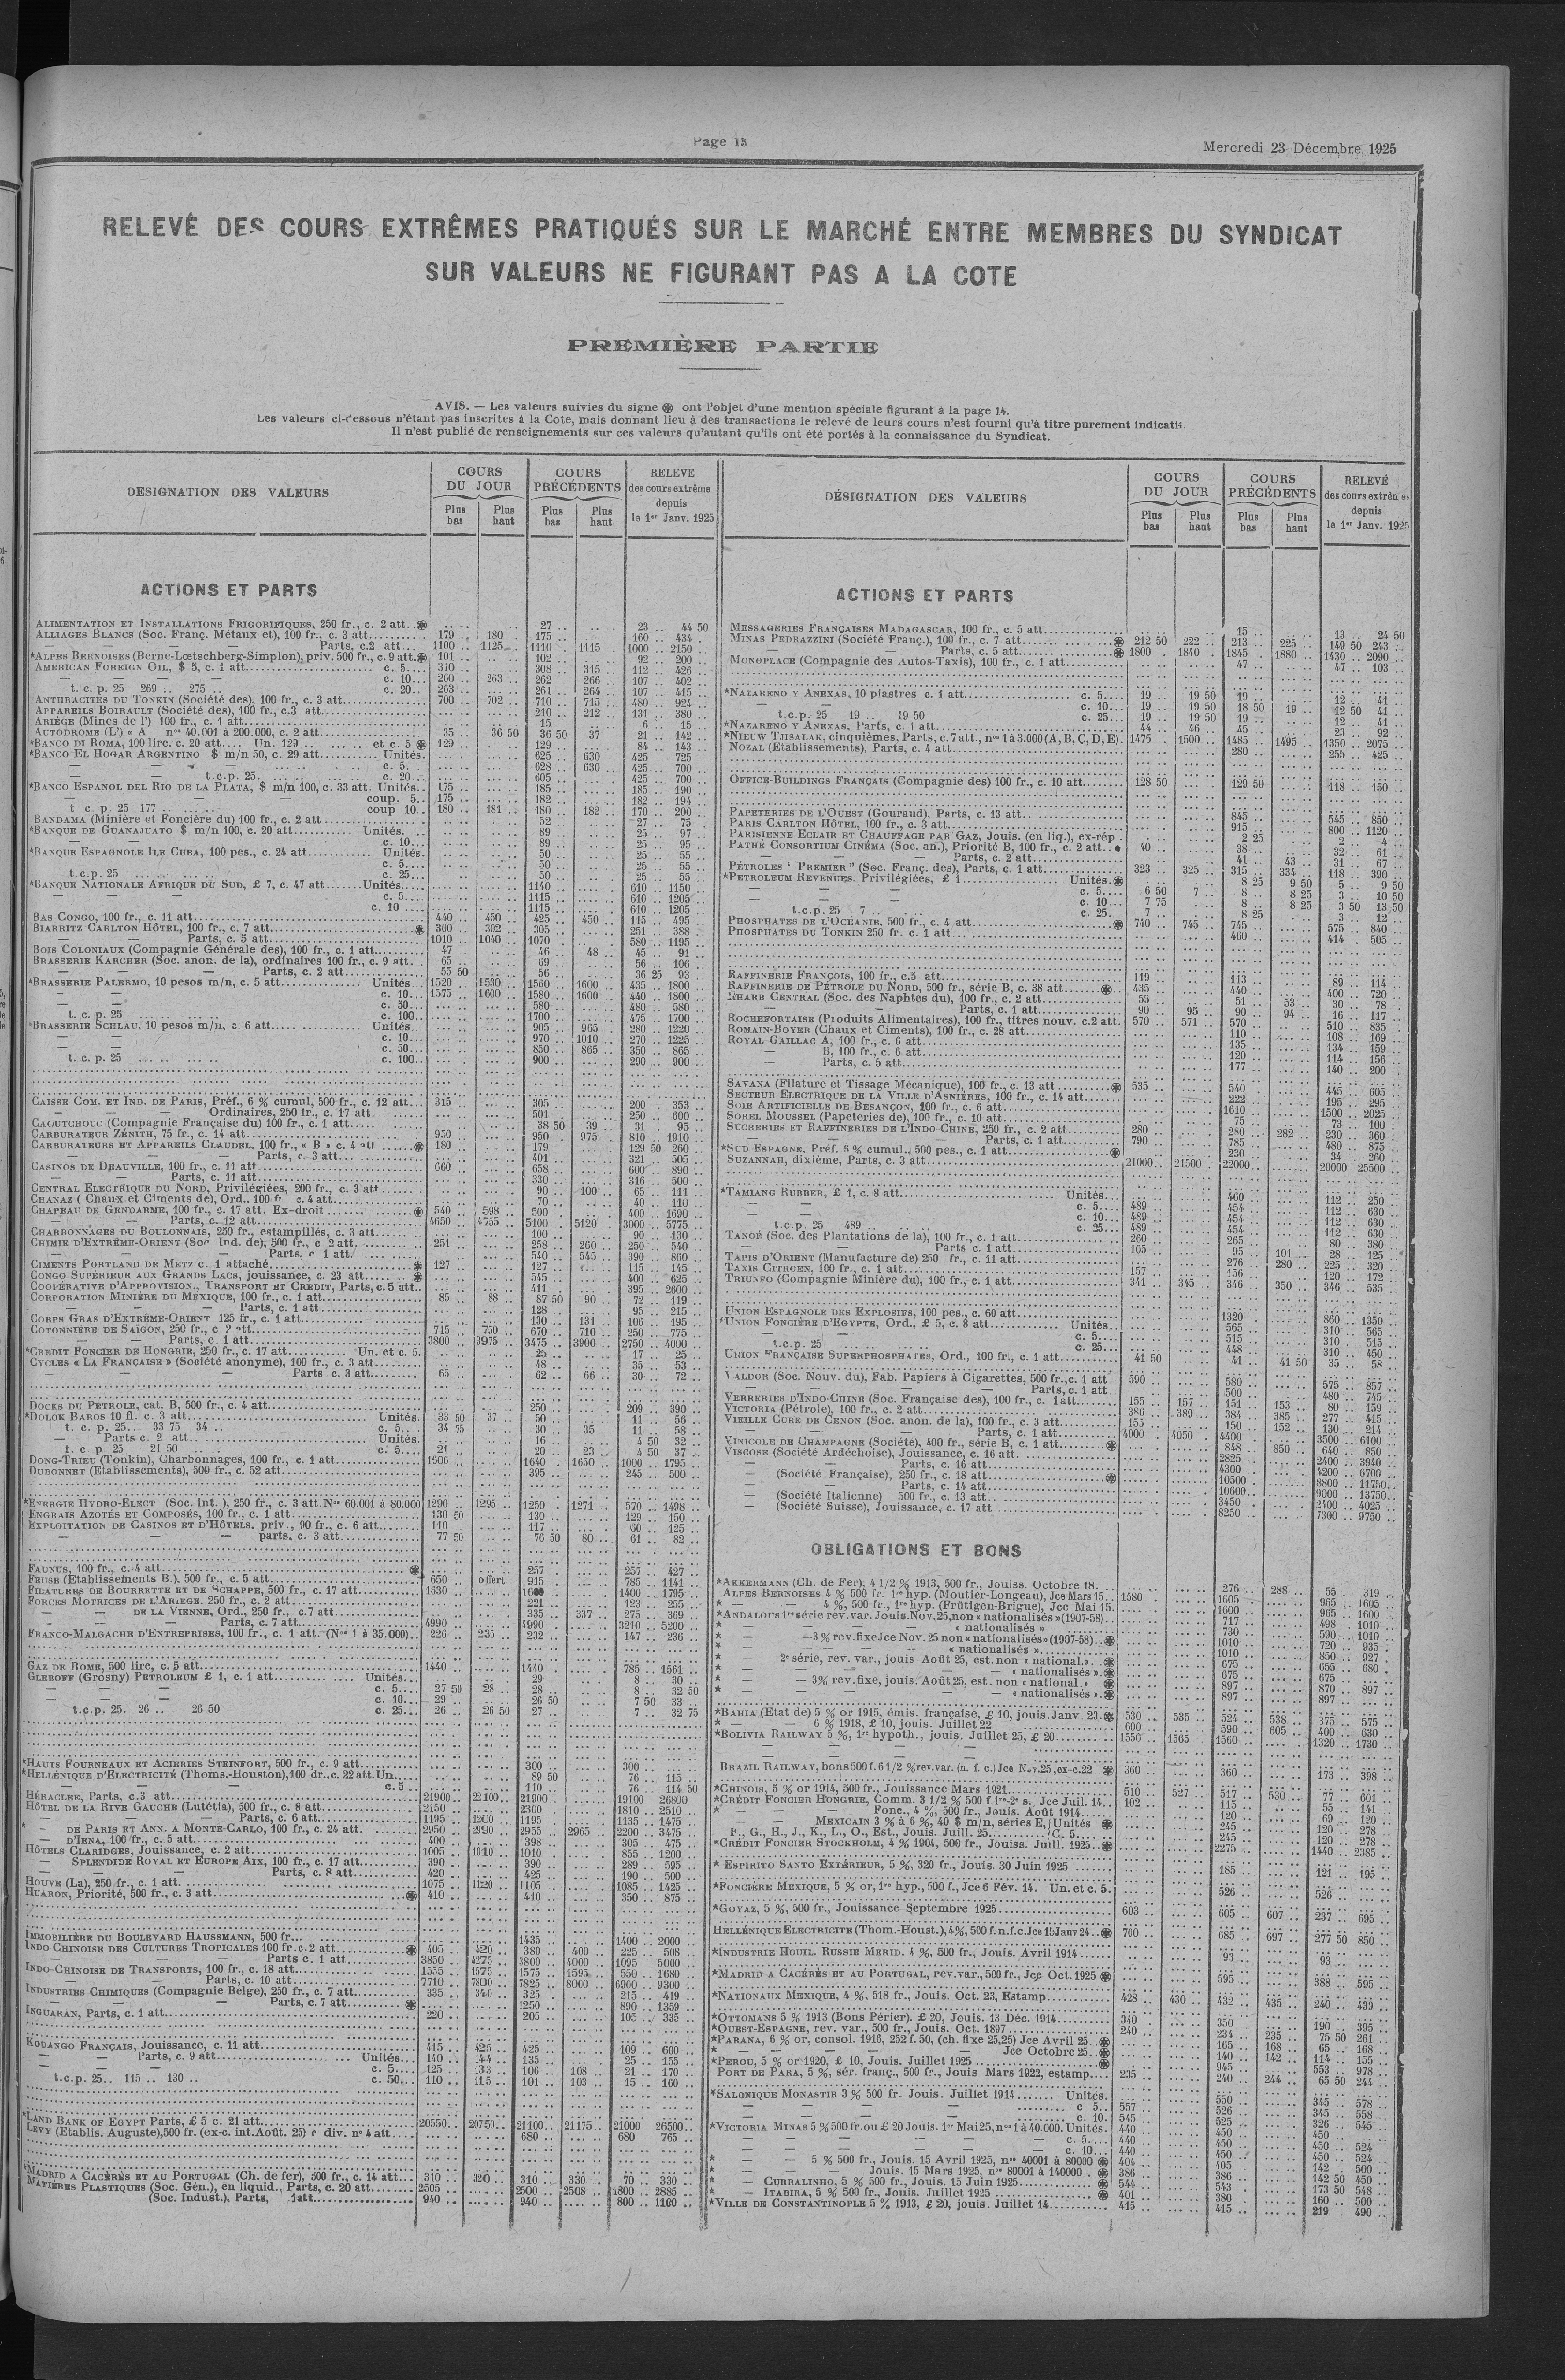 Page 13
Mercredi 23 Décembre 1925
RELEVÉ DES COURS EXTRÊMES PRATIQUÉS SUR LE MARCHÉ ENTRE MEMBRES DU SYNDICAT
SUR VALEURS NE FIGURANT PAS A LA COTE
PREMIÈRE PARTIE
AVIS. — Les valeurs suivies du signe ⊛ ont l'objet d'une mention spéciale figurant à la page 14.
Les valeurs ci-dessous n'étant pas inscrites à la Cote, mais donnant lieu à des transactions le relevé de leurs cours n'est fourni qu'à titre purement indicatif
Il n'est publié de renseignements sur ces valeurs qu'autant qu'ils ont été portés à la connaissance du Syndicat.
DESIGNATION DES VALEURS
COURS DU JOUR
Plus bas
Plus haut
COURS PRÉCÉDENTS
Plus bas
Plus haut
RELEVE des cours extrême depuis le 1er Janv. 1925
ACTIONS ET PARTS
ALIMENTATION ET INSTALLATIONS FRIGORIFIQUES, 250 fr., c. 2 att. ⊛ 27 23 44 50
ALLIAGES BLANCS (Soc. Franç. Métaux et), 100 fr., c. 3 att. 179 180 175 160 434
— — — Parts, c.2 att. 1100 1125 1110 1115 1000 2150
*ALPES BERNOISES (Berne-Lœtschberg-Simplon), priv. 500 fr., c. 9 att. ⊛ 101 102 92 200
AMERICAN FOREIGN OIL, $ 5, c. 1 att. c. 5 310 308 315 112 426
— — — c. 10 260 263 262 266 107 402
t. c. p. 25 269 275 c. 20 263 261 264 107 415
ANTHRACITES DU TONKIN (Société des), 100 fr., c. 3 att. 700 702 710 715 480 924
APPAREILS BOIRAULT (Société des), 100 fr., c.3 att. 210 212 131 380
ARIÈGE (Mines de l') 100 fr., c. 1 att. 15 6 15
AUTODROME (L') « A nos 40.001 à 200.000, c. 2 att. 35 36 50 36 50 37 21 142
*BANCO DI ROMA, 100 lire. c. 20 att. Un. 129 et c. 5 ⊛ 129 129 84 143
*BANCO EL HOGAR ARGENTINO $ m/n 50, c. 29 att. Unités. 625 630 425 725
— — — c. 5. 628 630 425 700
— t.c.p. 25. c. 20 605 425 700
*BANCO ESPANOL DEL RIO DE LA PLATA, $ m/n 100, c. 33 att. Unités 175 185 185 190
— — — coup. 5 175 182 182 194
t c. p. 25 177 coup 10 180 181 180 182 170 200
BANDAMA (Minière et Foncière du) 100 fr., c. 2 att 52 27 75
*BANQUE DE GUANAJUATO $ m/n 100, c. 20 att. Unités. 89 25 97
— — c. 10 89 25 95
*BANQUE ESPAGNOLE ILE CUBA, 100 pes., c. 24 att. Unités. 50 25 55
— — c. 5 50 25 55
t.c.p. 25 c. 25 50 25 55
*BANQUE NATIONALE AFRIQUE DU SUD, £ 7, c. 47 att. Unités 1140 610 1150
— — — c. 5 1115 610 1205
c. 10 1115 610 1205
BAS CONGO, 100 fr., c. 11 att. 440 450 425 450 115 495
BIARRITZ CARLTON HÔTEL, 100 fr., c. 7 att. ⊛ 300 302 305 251 388
— — Parts, c. 5 att. 1010 1040 1070 580 1195
BOIS COLONIAUX (Compagnie Générale des), 100 fr., c. 1 att. 47 46 48 45 91
BRASSERIE KARCHER (Soc. anon. de la), ordinaires 100 fr., c. 9 att. 65 69 56 106
— — Parts, c. 2 att. 55 50 56 36 25 93
*BRASSERIE PALERMO, 10 pesos m/n, c. 5 att. Unités. 1520 1530 1560 1600 435 1800
— — c. 10 1575 1600 1580 1600 440 1800
— — c. 50 580 480 580
t. c. p. 25 c. 100 1700 475 1700
*BRASSERIE SCHLAU, 10 pesos m/n, c. 6 att. Unités 905 965 280 1220
— — c. 10 970 1010 270 1225
— — c. 50 850 865 350 865
t. c. p. 25 c. 100 900 290 900
CAISSE COM. ET IND. DE PARIS, Préf., 6 % cumul, 500 fr., c. 12 att. 315 305 200 353
— — Ordinaires, 250 fr., c. 17 att. 501 250 600
CAOUTCHOUC (Compagnie Française du) 100 fr., c. 1 att. 38 50 39 31 95
CARBURATEUR ZÉNITH, 75 fr., c. 14 att. 950 950 975 810 1910
CARBURATEURS ET APPAREILS CLAUDEL, 100 fr., « B » c. 4 att ⊛ 180 179 129 50 260
— — Parts, c. 3 att. 401 321 505
CASINOS DE DEAUVILLE, 100 fr., c. 11 att 660 658 600 890
— — Parts, c. 11 att. 330 316 500
CENTRAL ELECTRIQUE DU NORD, Privilégiées, 200 fr., c. 3 att 90 100 65 111
CHANAZ (Chaux et Ciments de), Ord., 100 fr c. 4 att. 70 40 110
CHAPEAU DE GENDARME, 100 fr., c. 17 att. Ex-droit ⊛ 540 598 500 400 1690
— — Parts, c. 12 att. 4650 4755 5100 5120 3000 5775
CHARBONNAGES DU BOULONNAIS, 250 fr., estampillés, c. 3 att. 100 90 130
CHIMIE D'EXTRÊME-ORIENT (Soc Ind. de), 500 fr., c 2 att. 251 258 260 250 540
— — Parts. c 1 att. 540 545 390 860
CIMENTS PORTLAND DE METZ c. 1 attaché ⊛ 127 127 115 145
CONGO SUPERIEUR AUX GRANDS LACS, jouissance, c. 23 att. ⊛ 545 400 625
COOPÉRATIVE D'APPROVISION., TRANSPORT ET CREDIT, Parts, c. 5 att. 411 395 2600
CORPORATION MINIÈRE DU MEXIQUE, 100 fr., c. 1 att. 85 88 87 50 90 72 119
— — Parts, c. 1 att. 128 95 215
CORPS GRAS D'EXTRÊME-ORIENT 125 fr., c. 1 att. 130 131 106 195
COTONNIÈRE DE SAÏGON, 250 fr., c 2 att. 715 750 670 710 250 775
— — Parts, c. 1 att. 3800 3975 3475 3900 2750 4000
*CREDIT FONCIER DE HONGRIE, 250 fr., c. 17 att. Un. et c. 5. 25 17 25
CYCLES « LA FRANÇAISE » (Société anonyme), 100 fr., c. 3 att. 48 35 53
— — — Parts c. 3 att. 65 62 66 30 72
DOCKS DU PETROLE, cat. B, 500 fr., c. 4 att. 250 209 390
*DOLOK BAROS 10 fl. c. 3 att. Unités. 33 50 37 50 11 56
t. c. p. 25 33 75 34 c. 5 34 75 30 35 11 58
— Parts c. 2 att. Unités. 16 4 50 32
t. c p 25 21 50 c. 5 21 20 23 4 50 37
DONG-TRIEU (Tonkin), Charbonnages, 100 fr., c. 1 att. 1506 1640 1650 1000 1795
DUBONNET (Etablissements), 500 fr., c. 52 att. 395 245 500
*ENERGIE HYDRO-ELECT (Soc. int.), 250 fr., c. 3 att. Nos 60.001 à 80.000 1290 1295 1250 1271 570 1498
ENGRAIS AZOTÉS ET COMPOSÉS, 100 fr., c. 1 att. 130 50 130 129 150
EXPLOITATION DE CASINOS ET D'HÔTELS, priv., 90 fr., c. 6 att. 110 117 60 125
— — — parts, c. 3 att. 77 50 76 50 80 61 82
FAUNUS, 100 fr., c. 4 att. ⊛ 257 257 427
FEUSE (Etablissements B.), 500 fr., c. 5 att. 650 offert 915 785 1141
FILATURES DE BOURRETTE ET DE SCHAPPE, 500 fr., c. 17 att. 1630 1400 1795
FORCES MOTRICES DE L'ARIEGE. 250 fr., c. 2 att. 221 123 255
— — DE LA VIENNE, Ord., 250 fr., c.7 att. 335 337 275 369
— — Parts, c. 7 att. 4990 4990 3210 5200
FRANCO-MALGACHE D'ENTREPRISES, 100 fr., c. 1 att. (Nos 1 à 35.000). 226 235 232 147 236
GAZ DE ROME, 500 lire, c. 5 att. 1440 1440 785 1561
GLEBOFF (Grosny) PETROLEUM £ 1, c. 1 att. Unités. 29 8 30
— — c. 5 27 50 28 28 8 32 50
— — c. 10 29 26 50 7 50 33
t.c.p. 25. 26 26 50 c. 25 26 50 27 7 32 75
*HAUTS FOURNEAUX ET ACIERIES STEINFORT, 500 fr., c. 9 att. 300 300
*HELLÉNIQUE D'ELECTRICITÉ (Thoms.-Houston), 100 dr. c. 22 att. Un. 89 50 76 115
— — c. 5 110 76 114 50
HÉRACLEE, Parts, c.3 att. 21900 22100 21900 19100 26800
HÔTEL DE LA RIVE GAUCHE (Lutétia), 500 fr., c. 8 att. 2150 2300 1810 2510
— — Parts, c. 6 att. 1195 1200 1195 1135 1475
* — DE PARIS ET ANN. A MONTE-CARLO, 100 fr., c. 24 att. 2950 2990 2955 2965 2200 3475
— D'IENA, 100 fr., c. 5 att. 400 398 305 475
HÔTELS CLARIDGES, Jouissance, c. 2 att. 1005 1010 1010 855 1200
— SPLENDIDE ROYAL ET EUROPE AIX, 100 fr., c. 17 att. 390 390 289 595
— — Parts, c. 8 att. 420 425 190 500
HOUVE (La), 250 fr., c. 1 att. 1075 1120 1105 1085 1425
HUARON, Priorité, 500 fr., c. 3 att. ⊛ 410 410 350 875
IMMOBILIÈRE DU BOULEVARD HAUSSMANN, 500 fr. 1435 1400 2000
INDO CHINOISE DES CULTURES TROPICALES 100 fr. c. 2 att. ⊛ 405 420 380 400 225 508
— — Parts c. 1 att. 3850 4275 3800 4000 1095 5000
INDO-CHINOISE DE TRANSPORTS, 100 fr., c. 18 att. 1555 1575 1575 1595 550 1680
— — Parts, c. 10 att. 7710 7800 7825 8000 6900 9300
INDUSTRIES CHIMIQUES (Compagnie Belge), 250 fr., c. 7 att. 335 340 325 215 419
— — Parts, c. 7 att. ⊛ 1250 890 1359
INGUARAN, Parts, c. 1 att. 220 205 105 335
KOUANGO FRANÇAIS, Jouissance, c. 11 att. 415 425 425 109 600
— — Parts, c. 9 att. Unités 140 144 135 25 155
— — c. 5 125 133 106 108 21 170
t.c.p. 25 115 130 c. 50 110 115 101 103 15 160
*LAND BANK OF EGYPT Parts, £ 5 c. 21 att. 20550 20750 21100 21175 21000 26500
LEVY (Etablis. Auguste), 500 fr. (ex-c. int. Août. 25) c div. n° 4 att. 680 680 765
*MADRID A CACÉRÈS ET AU PORTUGAL (Ch. de fer), 500 fr., c. 14 att. 310 320 310 330 70 330
MATIÈRES PLASTIQUES (Soc. Gén.), en liquid., Parts, c. 20 att. 2505 2500 2508 1800 2885
(Soc. Indust.), Parts, 1 att. 940 940 800 1160
DÉSIGNATION DES VALEURS
COURS DU JOUR
Plus bas
Plus haut
COURS PRÉCÉDENTS
Plus bas
Plus haut
RELEVÉ des cours extrêm depuis le 1er Janv. 1925
ACTIONS ET PARTS
MESSAGERIES FRANÇAISES MADAGASCAR, 100 fr., c. 5 att. 15 13 24 50
MINAS PEDRAZZINI (Société Franç.), 100 fr., c. 7 att. ⊛ 212 50 222 213 225 149 50 243
— — Parts, c. 5 att. ⊛ 1800 1840 1845 1880 1430 2090
MONOPLACE (Compagnie des Autos-Taxis), 100 fr., c. 1 att. 47 47 103
*NAZARENO Y ANEXAS, 10 piastres c. 1 att. c. 5 19 19 50 19 12 41
— — c. 10 19 19 50 18 50 19 12 50 41
t.c.p. 25 19 19 50 c. 25 19 19 50 19 12 41
*NAZARENO Y ANEXAS, Parts, c. 1 att. 44 46 45 23 92
*NIEUW TJISALAK, cinquièmes, Parts, c. 7 att., nos 1 à 3.000 (A, B, C, D, E). 1475 1500 1485 1495 1350 2075
NOZAL (Etablissements), Parts, c. 4 att. 280 255 425
OFFICE-BUILDINGS FRANÇAIS (Compagnie des) 100 fr., c. 10 att. 128 50 129 50 118 150
PAPETERIES DE L'OUEST (Gouraud), Parts, c. 13 att. 845 545 850
PARIS CARLTON HÔTEL, 100 fr., c. 3 att. 915 800 1120
PARISIENNE ECLAIR ET CHAUFFAGE PAR GAZ, Jouis. (en liq.), ex-rép. 2 25 2 4
PATHÉ CONSORTIUM CINÉMA (Soc. an.), Priorité B, 100 fr., c. 2 att. 40 38 32 61
— — Parts, c. 2 att. 41 43 31 67
PÉTROLES " PREMIER " (Soc. Franç. des), Parts, c. 1 att. 323 325 315 334 118 390
*PETROLEUM REVENUES, Privilégiées, £ 1 Unités. ⊛ 8 25 9 50 5 9 50
— — c. 5 6 50 7 8 8 25 3 10 50
— — c. 10 7 75 8 8 25 3 50 13 50
t.c.p. 25 7 c. 25. 7 8 25 3 12
PHOSPHATES DE L'OCÉANIE, 500 fr., c. 4 att. ⊛ 740 745 745 575 840
PHOSPHATES DU TONKIN 250 fr. c. 1 att. 460 414 505
RAFFINERIE FRANÇOIS, 100 fr., c.5 att. 119 113 89 114
RAFFINERIE DE PÉTROLE DU NORD, 500 fr., série B, c. 38 att. ⊛ 435 440 400 720
RHARB CENTRAL (Soc. des Naphtes du), 100 fr., c. 2 att. 55 51 53 30 78
— — Parts, c. 1 att. 90 95 90 94 16 117
ROCHEFORTAISE (Produits Alimentaires), 100 fr., titres nouv. c.2 att. 570 571 570 510 835
ROMAIN-BOYER (Chaux et Ciments), 100 fr., c. 28 att. 110 108 169
ROYAL GAILLAC A, 100 fr., c. 6 att. 135 134 159
— B, 100 fr., c. 6 att. 120 114 156
— Parts, c. 5 att. 177 140 200
SAVANA (Filature et Tissage Mécanique), 100 fr., c. 13 att ⊛ 535 540 445 605
SECTEUR ELECTRIQUE DE LA VILLE D'ASNIÈRES, 100 fr., c. 14 att. 222 195 295
SOIE ARTIFICIELLE DE BESANÇON, 100 fr., c. 6 att. 1610 1500 2025
SOREL MOUSSEL (Papeteries de), 100 fr., c. 10 att. 75 73 100
SUCRERIES ET RAFFINERIES DE L'INDO-CHINE, 250 fr., c. 2 att. 280 280 282 230 360
— — Parts, c. 1 att. 790 785 480 875
*SUD ESPAGNE, Préf. 6 % cumul., 500 pes., c. 1 att. ⊛ 230 34 260
SUZANNAH, dixième, Parts, c. 3 att. 21000 21500 22000 20000 25500
*TAMIANG RUBBER, £ 1, c. 8 att. Unités. 460 112 250
— — c. 5 489 454 112 630
— — c. 10 489 454 112 630
t.c.p. 25 489 c. 25 489 454 112 630
TANOÉ (Soc. des Plantations de la), 100 fr., c. 1 att. 260 265 80 380
— — Parts c. 1 att. 105 95 101 28 125
TAPIS D'ORIENT (Manufacture de) 250 fr., c. 11 att. 276 280 225 320
TAXIS CITROEN, 100 fr., c. 1 att. 157 156 120 172
TRIUNFO (Compagnie Minière du), 100 fr., c. 1 att. 341 345 346 350 346 535
UNION ESPAGNOLE DES EXPLOSIFS, 100 pes., c. 60 att. 1320 860 1350
*UNION FONCIÈRE D'EGYPTE, Ord., £ 5, c. 8 att. Unités. 565 310 565
— — c. 5 515 310 515
t.c.p. 25 c. 25 448 310 450
UNION FRANÇAISE SUPERPHOSPHATES, Ord., 100 fr., c. 1 att. 41 50 41 41 50 35 58
VALDOR (Soc. Nouv. du), Fab. Papiers à Cigarettes, 500 fr., c. 1 att 590 580 575 857
— — Parts, c. 1 att. 500 480 745
VERRERIES D'INDO-CHINE (Soc. Française des), 100 fr., c. 1 att. 155 157 151 153 80 159
VICTORIA (Pétrole), 100 fr., c. 2 att. 386 389 384 385 277 415
VIEILLE CURE DE CENON (Soc. anon. de la), 100 fr., c. 3 att. 155 150 152 130 214
— — Parts, c. 1 att. 4000 4050 4400 3500 6100
VINICOLE DE CHAMPAGNE (Société), 400 fr., série B, c. 1 att. ⊛ 848 850 640 850
VISCOSE (Société Ardéchoise), Jouissance, c. 16 att. 2825 2400 3940
— — Parts, c. 16 att. 4300 4200 6700
— (Société Française), 250 fr., c. 18 att. ⊛ 10500 8800 11750
— — Parts, c. 14 att. 10600 9000 13750
— (Société Italienne) 500 fr., c. 13 att. 3450 2400 4025
— (Société Suisse), Jouissance, c. 17 att. 8250 7300 9750
OBLIGATIONS ET BONS
*AKKERMANN (Ch. de Fer), 4 1/2 % 1913, 500 fr., Jouiss. Octobre 18. 276 288 55 319
ALPES BERNOISES 4 % 500 fr. 1re hyp. (Moutier-Longeau), Jce Mars 15 1580 1605 965 1605
* — — 4 %, 500 fr., 1re hyp. (Frütigen-Brigue), Jce Mai 15. 1600 965 1600
*ANDALOUS 1re série rev. var. Jouis. Nov. 25, non « nationalisés » (1907-58) 717 498 1010
* — — « nationalisés » 730 590 1010
* — — 3 % rev. fixe Jce Nov. 25 non « nationalisés » (1907-58) ⊛ 1010 720 935
* — — « nationalisés » 1010 850 927
* — 2e série, rev. var., jouis Août 25, est. non « national. » ⊛ 675 655 680
* — — « nationalisés » ⊛ 675 675
* — — 3% rev. fixe, jouis. Août 25, est. non « national. » ⊛ 897 870 897
* — — « nationalisés » ⊛ 897 897
*BAHIA (Etat de) 5 % or 1915, émis. française, £ 10, jouis. Janv. 23. ⊛ 530 535 524 538 375 575
* — 6 % 1918, £ 10, jouis. Juillet 22 600 590 605 400 630
*BOLIVIA RAILWAY 5 %, 1re hypoth., jouis. Juillet 25, £ 20 1550 1565 1560 1320 1730
BRAZIL RAILWAY, bons 500 f. 6 1/2 % rev. var. (n. f. c.) Jce Nov. 25, ex-c. 22 ⊛ 360 360 173 398
*CHINOIS, 5 % or 1914, 500 fr., Jouissance Mars 1921 510 527 517 530 77 601
*CRÉDIT FONCIER HONGRIE, Comm. 3 1/2 % 500 f. 1re-2e s. Jce Juil. 14 102 115 55 141
* — — Fonc., 4 %, 500 fr., Jouis. Août 1914 120 69 120
* — MEXICAIN 3 % à 6 %, 40 $ m/n, séries E, Unités ⊛ 245 120 278
F., G., H., J., K., L., O., Est., Jouis. Juill. 25 C. 5 245 120 278
*CRÉDIT FONCIER STOCKHOLM, 4 % 1904, 500 fr., Jouiss. Juill. 1925 ⊛ 2275 1440 2385
*ESPIRITO SANTO EXTÉRIEUR, 5 %, 320 fr., Jouis. 30 Juin 1925 185 121 195
*FONCIÈRE MEXIQUE, 5 % or, 1re hyp., 500 f., Jce 6 Fév. 14. Un. et c. 5. 526 526
*GOYAZ, 5 %, 500 fr., Jouissance Septembre 1925 603 605 607 237 695
HELLÉNIQUE ELECTRICITE (Thom.-Houst.), 4%, 500 f. n. f. c. Jce 15 Janv 24 ⊛ 700 685 697 277 50 850
*INDUSTRIE HOUIL. RUSSIE MERID. 4 %, 500 fr., Jouis. Avril 1914 93 93
*MADRID A CACÉRÈS ET AU PORTUGAL, rev. var., 500 fr., Jce Oct. 1925 ⊛ 595 388 595
*NATIONAUX MEXIQUE, 4 %, 518 fr., Jouis. Oct. 23, Estamp. 428 430 432 435 240 439
*OTTOMANS 5 % 1913 (Bons Périer). £ 20, Jouis. 13 Déc. 1914 340 350 190 395
*OUEST-ESPAGNE, rev. var., 500 fr., Jouis. Oct. 1897 240 234 235 75 50 261
*PARANA, 6 % or, consol. 1916, 252 f. 50, (ch. fixe 25,25) Jce Avril 25 ⊛ 165 168 65 168
* — Jce Octobre 25 ⊛ 140 142 114 155
*PEROU, 5 % or 1920, £ 10, Jouis. Juillet 1925 ⊛ 945 553 978
PORT DE PARA, 5 %, sér. franç., 500 fr., Jouis Mars 1922, estamp. 235 240 244 65 50 244
*SALONIQUE MONASTIR 3 % 500 fr. Jouis. Juillet 1914 Unités. 550 345 578
— — c 5 557 526 345 558
— — c. 10. 545 525 326 545
*VICTORIA MINAS 5 % 500 fr. ou £ 20 Jouis. 1er Mai 25, nos 1 à 40.000. Unités. 440 450 450
— — c. 5 440 450 450 524
— — c. 10 440 450 450 524
* — — 5 % 500 fr., Jouis. 15 Avril 1925, nos 40001 à 80000 ⊛ 404 405 142 500
* — — Jouis. 15 Mars 1925, nos 80001 à 140000 ⊛ 386 386 142 50 450
* — CURRALINHO, 5 % 500 fr., Jouis. 15 Juin 1925 ⊛ 544 543 173 50 548
* — ITABIRA, 5 % 500 fr., Jouis. Juillet 1925 ⊛ 401 380 160 500
*VILLE DE CONSTANTINOPLE 5 % 1913, £ 20, jouis. Juillet 14 415 415 219 490